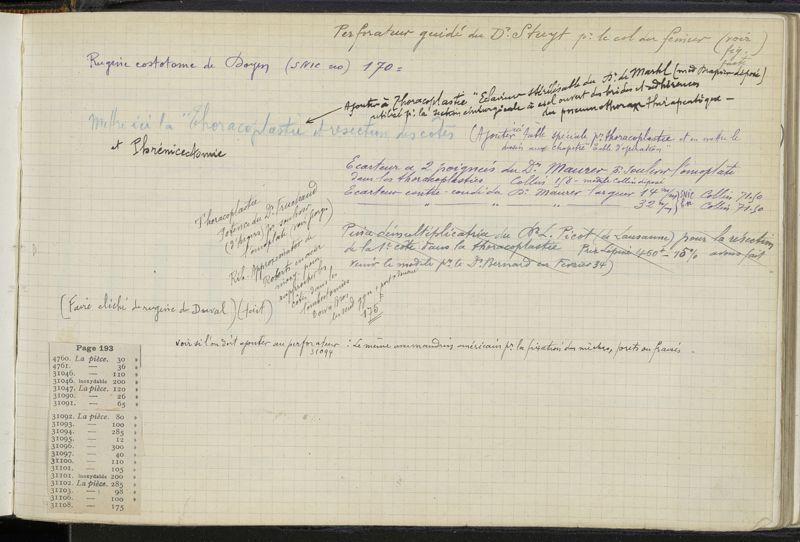 Perforateur guidé du Dr Stuyt pr le col du fémur (voir
fig.
Rugine costotome de Doyen (SNIC no) 170=
Ajouter à Thoracoplastie "Eclaireur stérilisable du Dr de Martel (mod Drapier déposé)
utilisé pr la section chirurgicale à ciel ouvert des brides et adhérences
du pneumothorax thérapeutique —
Mettre ici la "Thoracoplastie et résection des côtes
et Phrénicectomie
(Ajouter ici table spéciale pr thoracoplastie et en mettre le
dessin aux chapitre "Table d'opération"
Ecarteur à 2 poignées du Dr Maurer pr soulever l'omoplate
dans les thoracoplasties Collin modèle Collin déposé
Ecarteur contre-coudé du Dr Maurer largeur 14 m/m SNIC Collin 71.50
" " " " 32 m/m Collin 71.50
Thoracoplastie
du Dr
(d'épaves) pr soulever
l'omoplate
Rib. Approximator de
Roberts
pour
rapprocher les
côtes dans les
175
Pince démultiplicatrice du Dr L. Picot (de Lausanne) pour la résection
de la 1re côte dans la thoracoplastie Prix Lépine 460= 15% avons fait
venir le modèle pr le Dr Bernard en Février 34)
(Faire cliché de rugine de Duval) (fait)
voir si l'on doit ajouter au perforateur : Le même au mandrin américain pr la fixation des mèches, forets ou fraises.
31094
Page 193
4760. La pièce. 30 »
4761. — 36 »
31046. — 110 »
31046. inoxydable 200 »
31047. La pièce. 120 »
31090. — 26 »
31091. — 65 »
31092. La pièce. 80 »
31093. — 100 »
31094. — 285 »
31095. — 12 »
31096. — 300 »
31097. — 40 »
31100. — 110 »
31101. — 105 »
31101. inoxydable 200 »
31102. La pièce. 285 »
31103. — 98 »
31106. — 100 »
31108. — 175 »